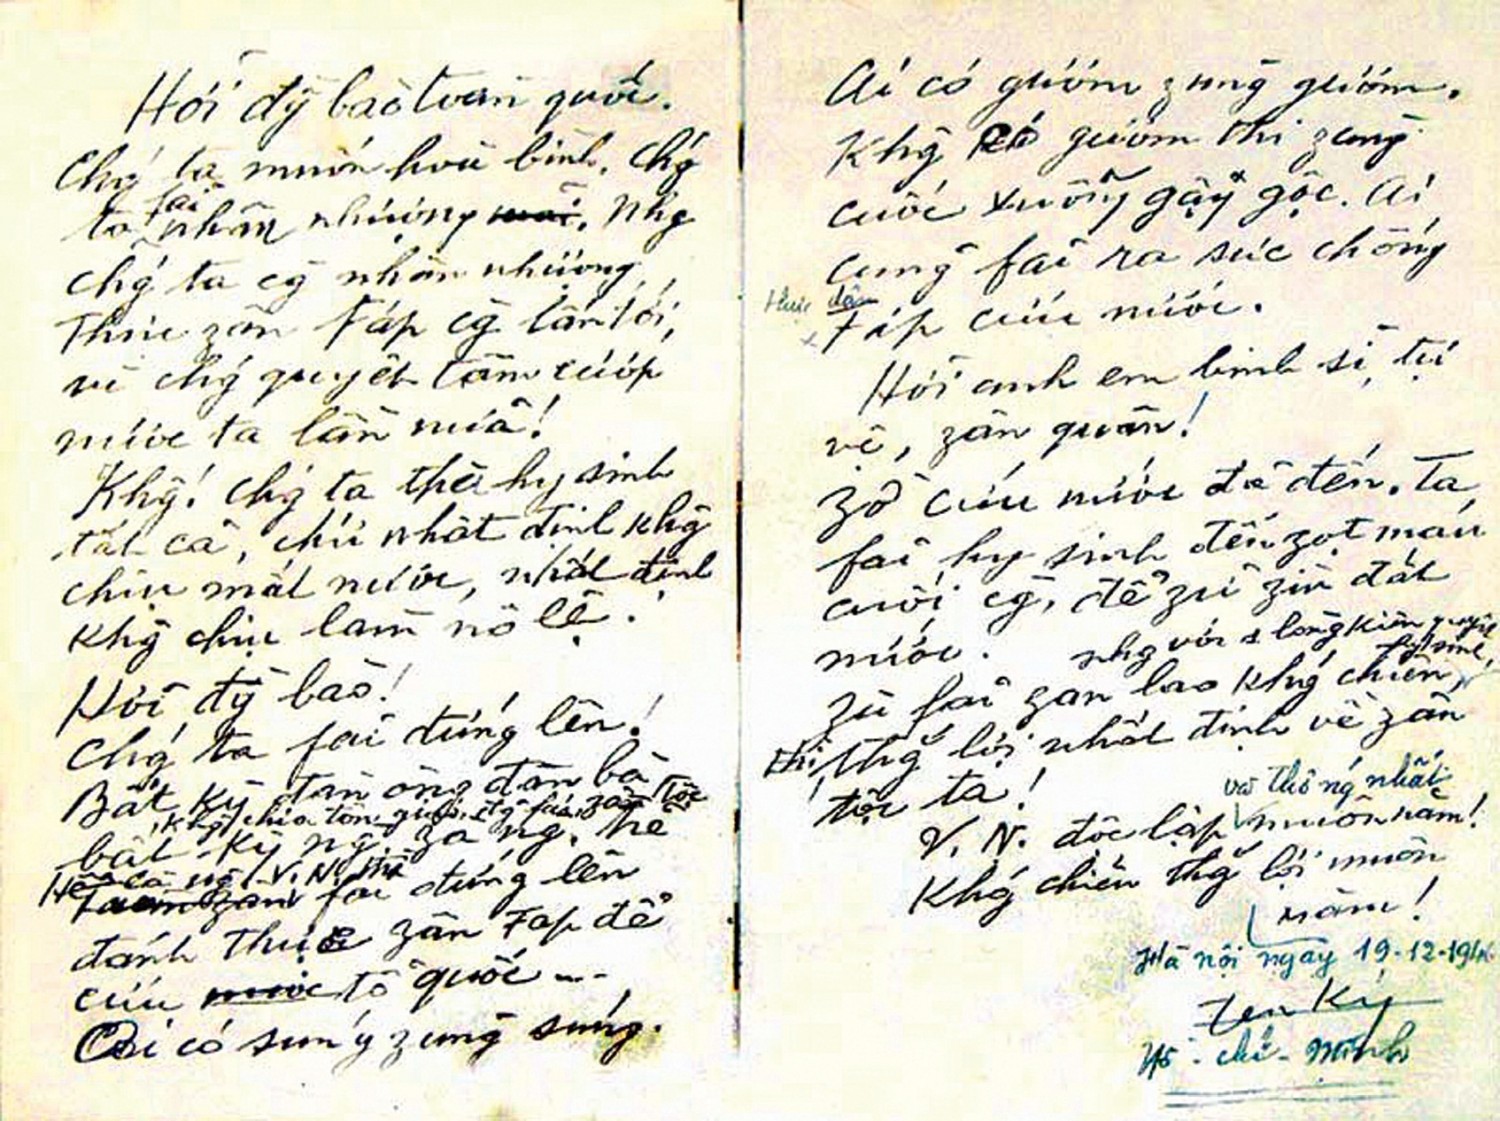 Hỡi đ̀ꝗ bào toàn quốc.
Chǵ ta muốn hoà bình, chǵ
ta fải nhân nhượng. Nhg
chǵ ta cg̃ nhân nhượng,
thực zân Fáp cg̀ lấn tới,
vì chǵ quyết tâm cướp
nước ta lần nữa!
Khĝ! Chǵ ta thà hy sinh
tất cả, chứ nhất định khĝ
chịu mất nước, nhất định
khĝ chịu làm nô lệ.
Hỡi đg̀ bào!
Chǵ ta fải đứng lên!
Bất kỳ đàn ông đàn bà
bất kỳ ng̀ zà ng. trẻ
khĝ chia tôn giáo, đg fái, zân tộc
Hễ là ng̀ V.N. thì fải đứng lên
đánh thực zân Fáp để
cứu tổ quốc ---
Ai có súng zùng súng.
Ai có gươm zùng gươm.
Khĝ có gươm thì zùng
cuốc xuổng gậy gộc. Ai
cũng fải ra sức chống
thực dân
Fáp cứu nước.
Hỡi anh em binh sĩ, tự
vệ, zân quân!
Zờ cứu nước đã đến. Ta
fải hy sinh đến zọt máu
cuối cg̀, để zữ zìn đất
nước.
Zù fải zan lao khǵ chiến,
nhg với 1 lòng kiên quyết
hy sinh,
thì thğ́ lợi nhất định về zân
tộc ta!
V.N. độc lập và thống nhất muôn năm!
Khǵ chiến thğ́ lợi muôn
năm!
Hà nội ngày 19-12-194
Hồ-chí-Minh